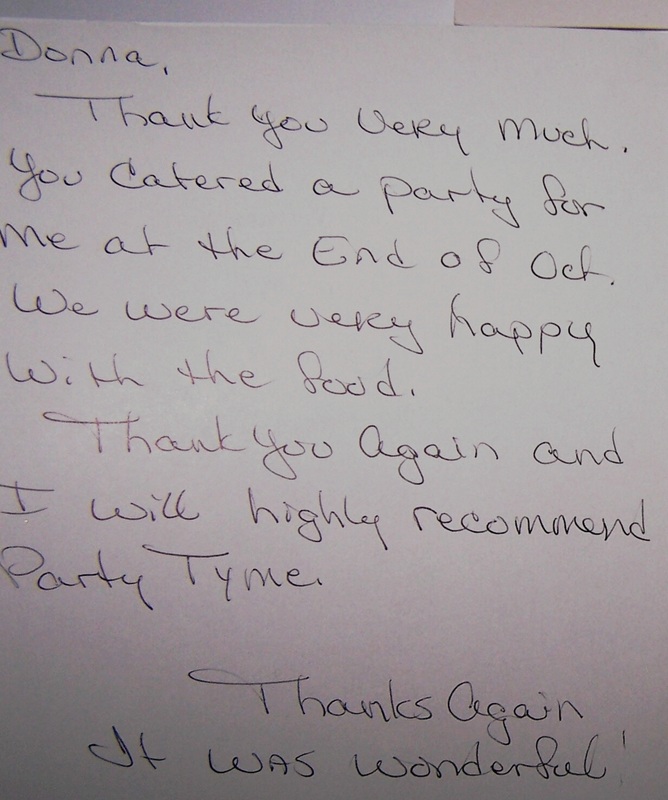 Donna,
Thank you very much.
You Catered a party for
me at the End of Oct.
We were very happy
with the food.
Thank you Again and
I will highly recommend
Party Tyme.
Thanks Again
It was wonderful!